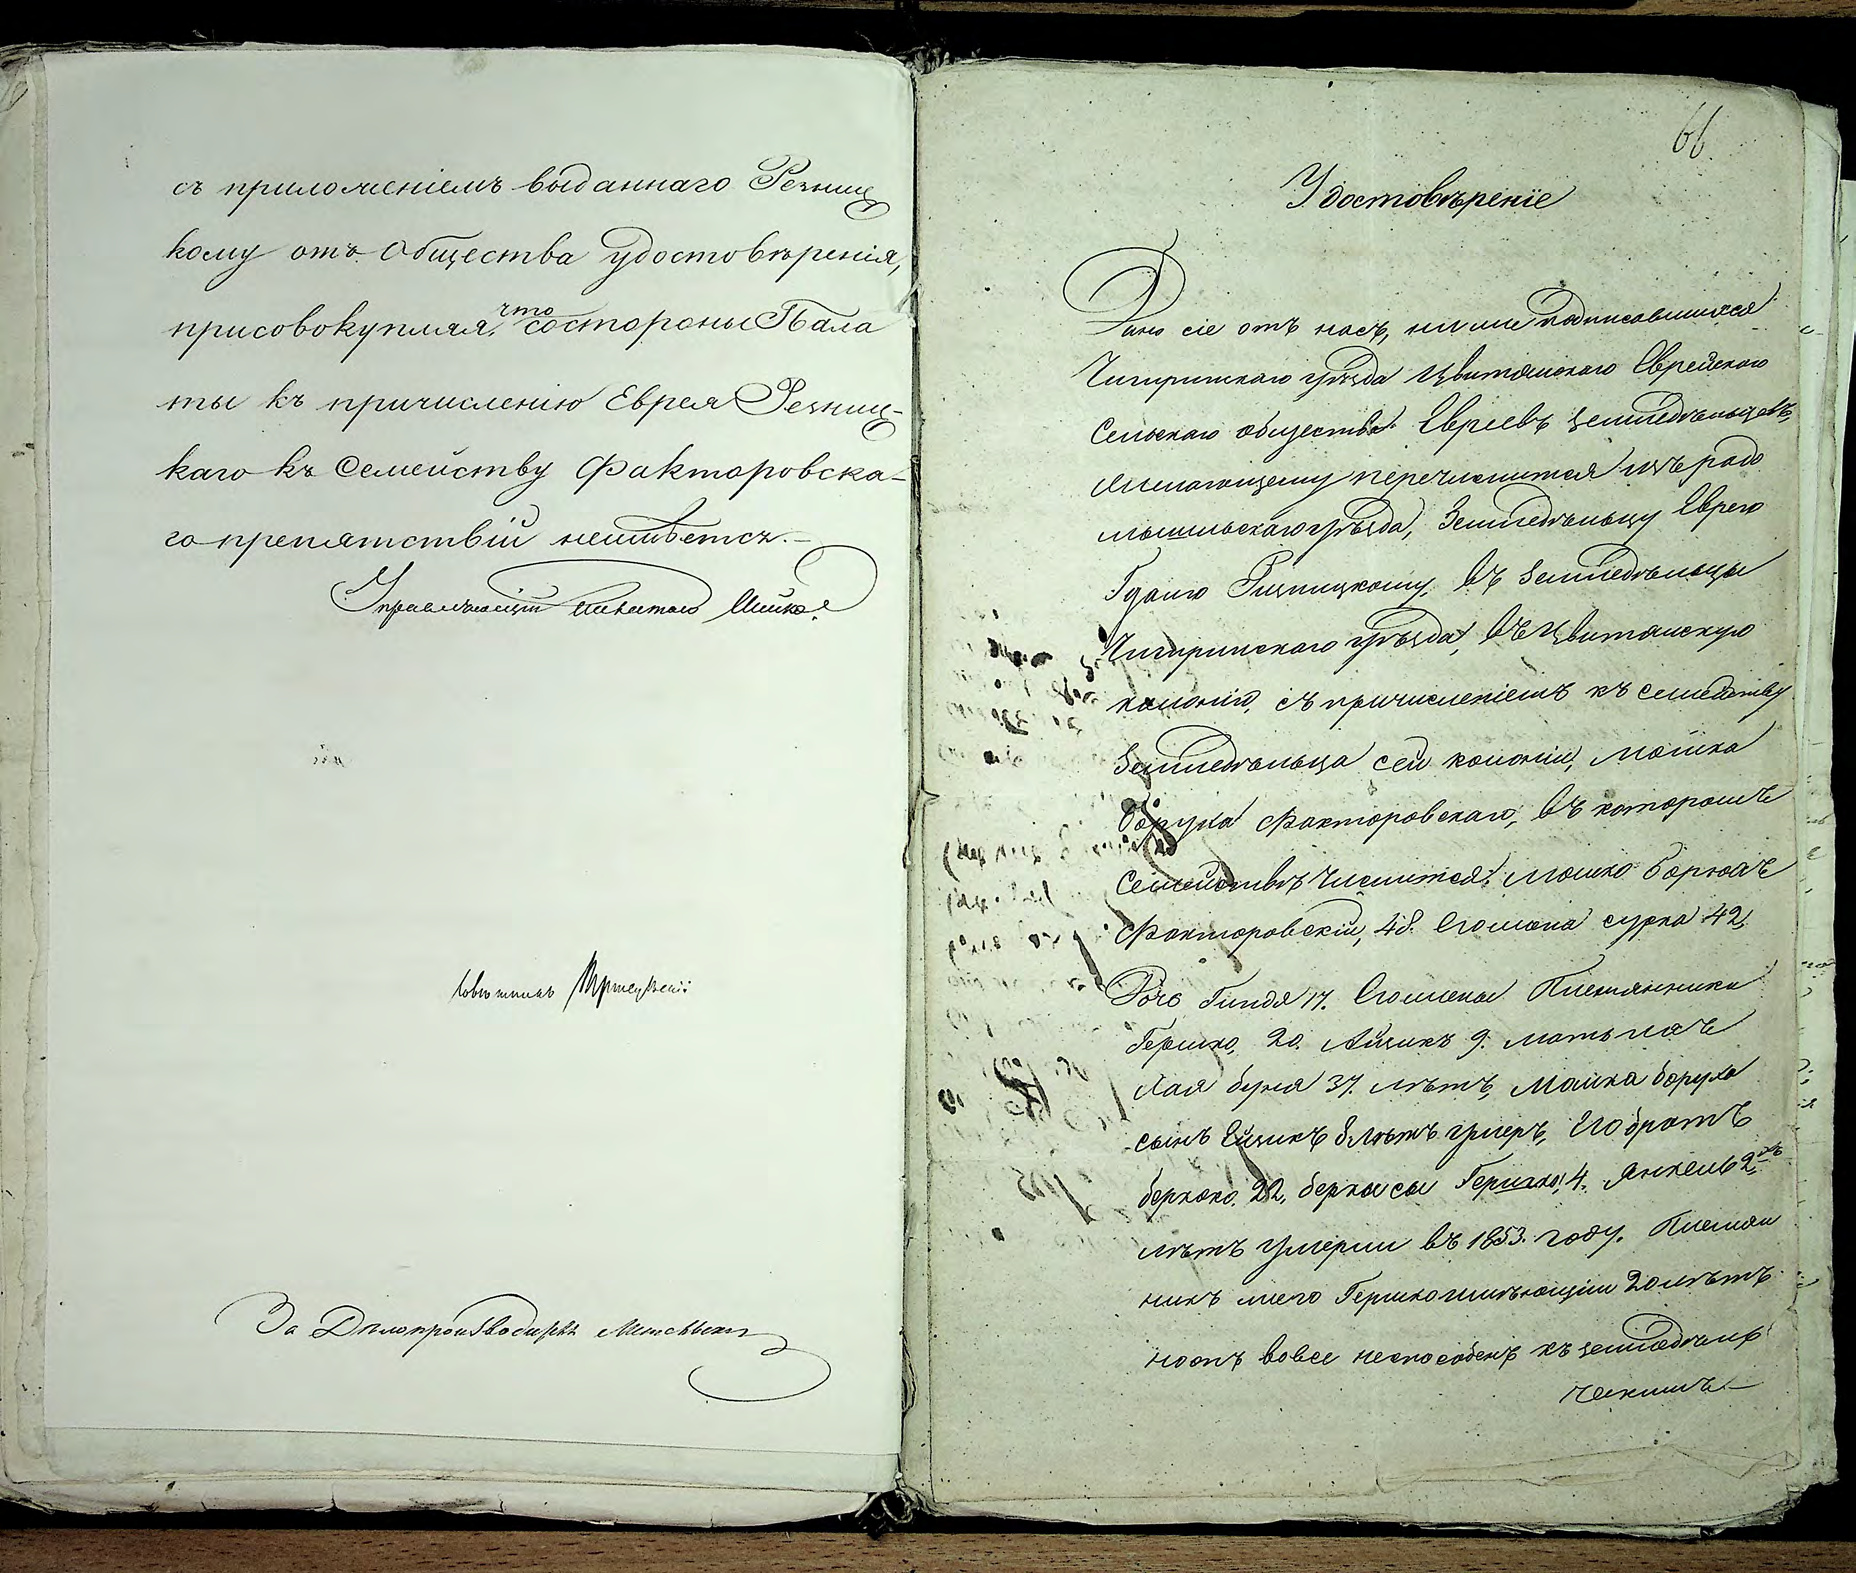 съ приложеніемъ выданнаго Резниц
кому отъ Общества удостовѣренія,
присовокупляя, что состороны Пала
ты къ причисленію Еврея Резниц-
каго къ Семейству Факторовска-
го препятствій неимѣется.-
Управляющій
Совѣтникъ
За Дѣлопроизводителя
66
Удостовѣреніе
Дано сіе отъ насъ, ниже подписавшихся
Чигиринскаго уѣзда Цвитянскаго Еврейскаго
Сельскаго общества Евреевъ Земледѣльцевъ,
желающему перечислится изъ радо
мысльскаго уѣзда, Земледѣльцу Еврею
Резницкому, въ Земледѣльцы
Чигиринскаго уѣзда, въ Цвитянскую
колонію, съ причисленіемъ къ семейству
Земледѣльца сей колоніи, Мошка
Боруха Факторовскаго, въ которомъ
Семействѣ числится: Мошко Борохъ
Факторовскій, 48. Его жена сурка 42,
Дочь Гиндя 17. Его жены Племянники
Гершко, 20. Айзикъ 9. мать ихъ
Хая буня 37. лѣтъ, Мошка боруха
сынъ Ейзикъ 8 лѣтъ умеръ, Его братъ
берко 22, берка сы Гершко 4. Янкель 2хъ
лѣтъ умерли въ 1853. году. Племян
никъ моего Гершко имѣющій 20 лѣтъ
но онъ вовсе неспособенъ къ земледѣльче
ческимъ